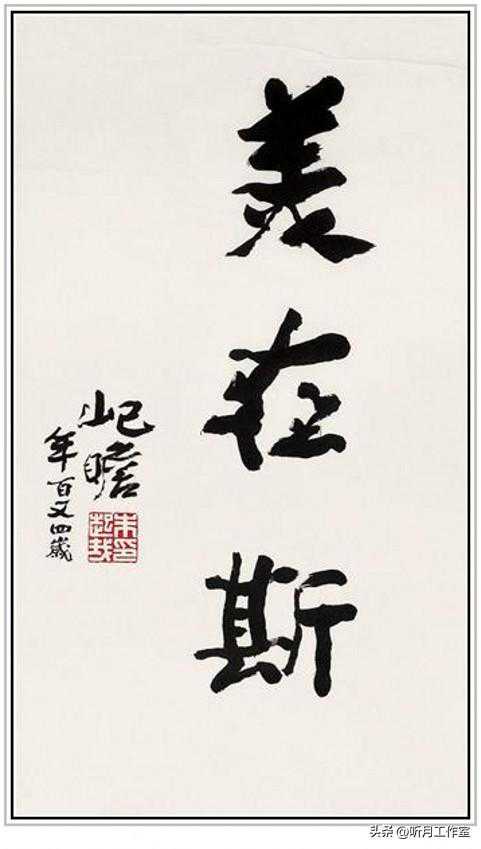 美在斯
屺瞻
年百又四歲
朱起哉印
头条 @听月工作室